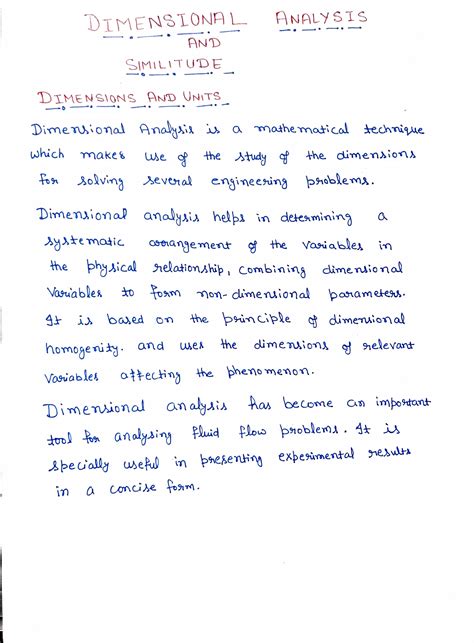 DIMENSIONAL ANALYSIS
AND
SIMILITUDE
DIMENSIONS AND UNITS
Dimensional Analysis is a mathematical technique
which makes use of the study of the dimensions
for solving several engineering problems.
Dimensional analysis helps in determining a
systematic arrangement of the variables in
the physical relationship, combining dimensional
variables to form non-dimensional parameters.
It is based on the principle of dimensional
homogenity. and uses the dimensions of relevant
variables affecting the phenomenon.
Dimensional analysis has become an important
tool for analysing fluid flow problems. It is
specially useful in presenting experimental results
in a concise form.